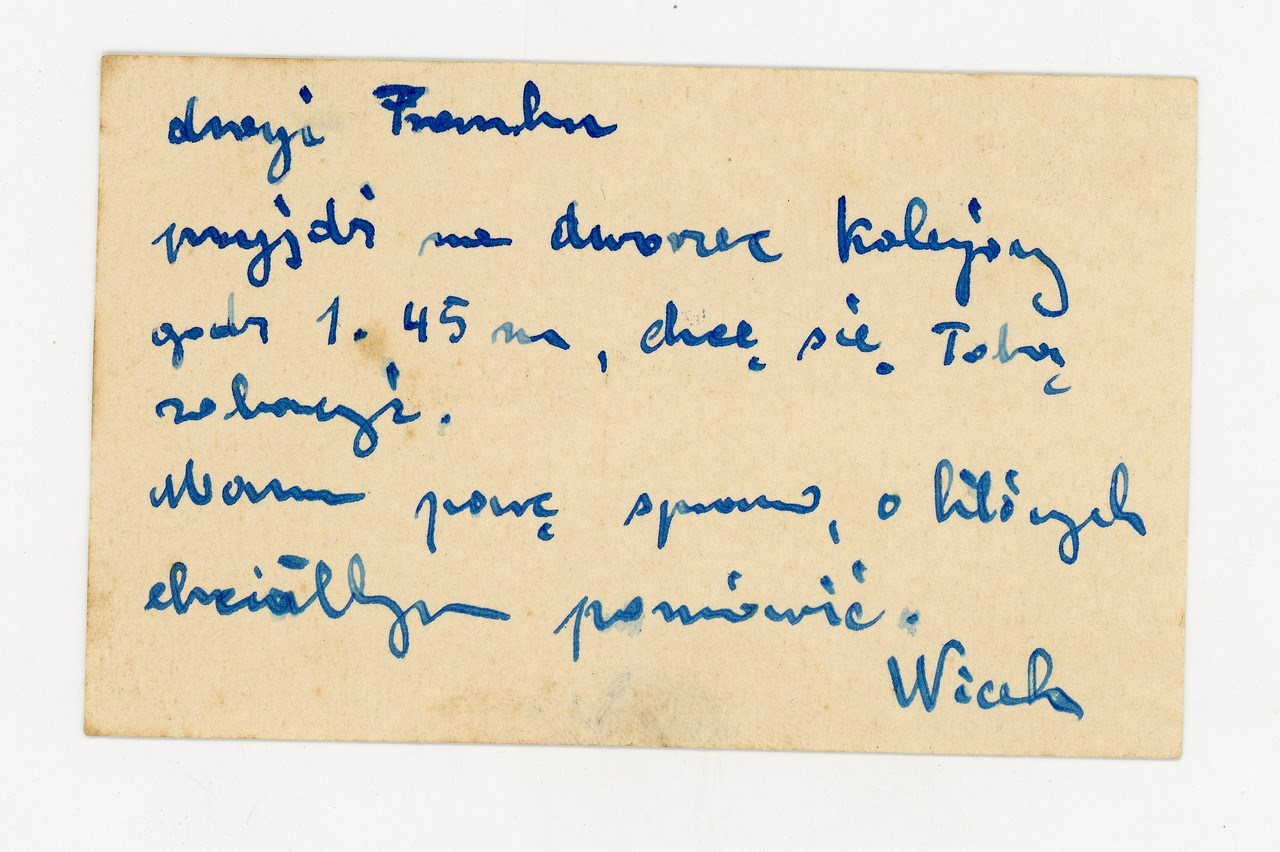 drogi Franku
przyjdź na dworzec kolejowy
godz 1. 45 m, chcę się Tobą
zobaczyć.
Mam parę spraw, o których
chciałbym pomówić.
Wicek